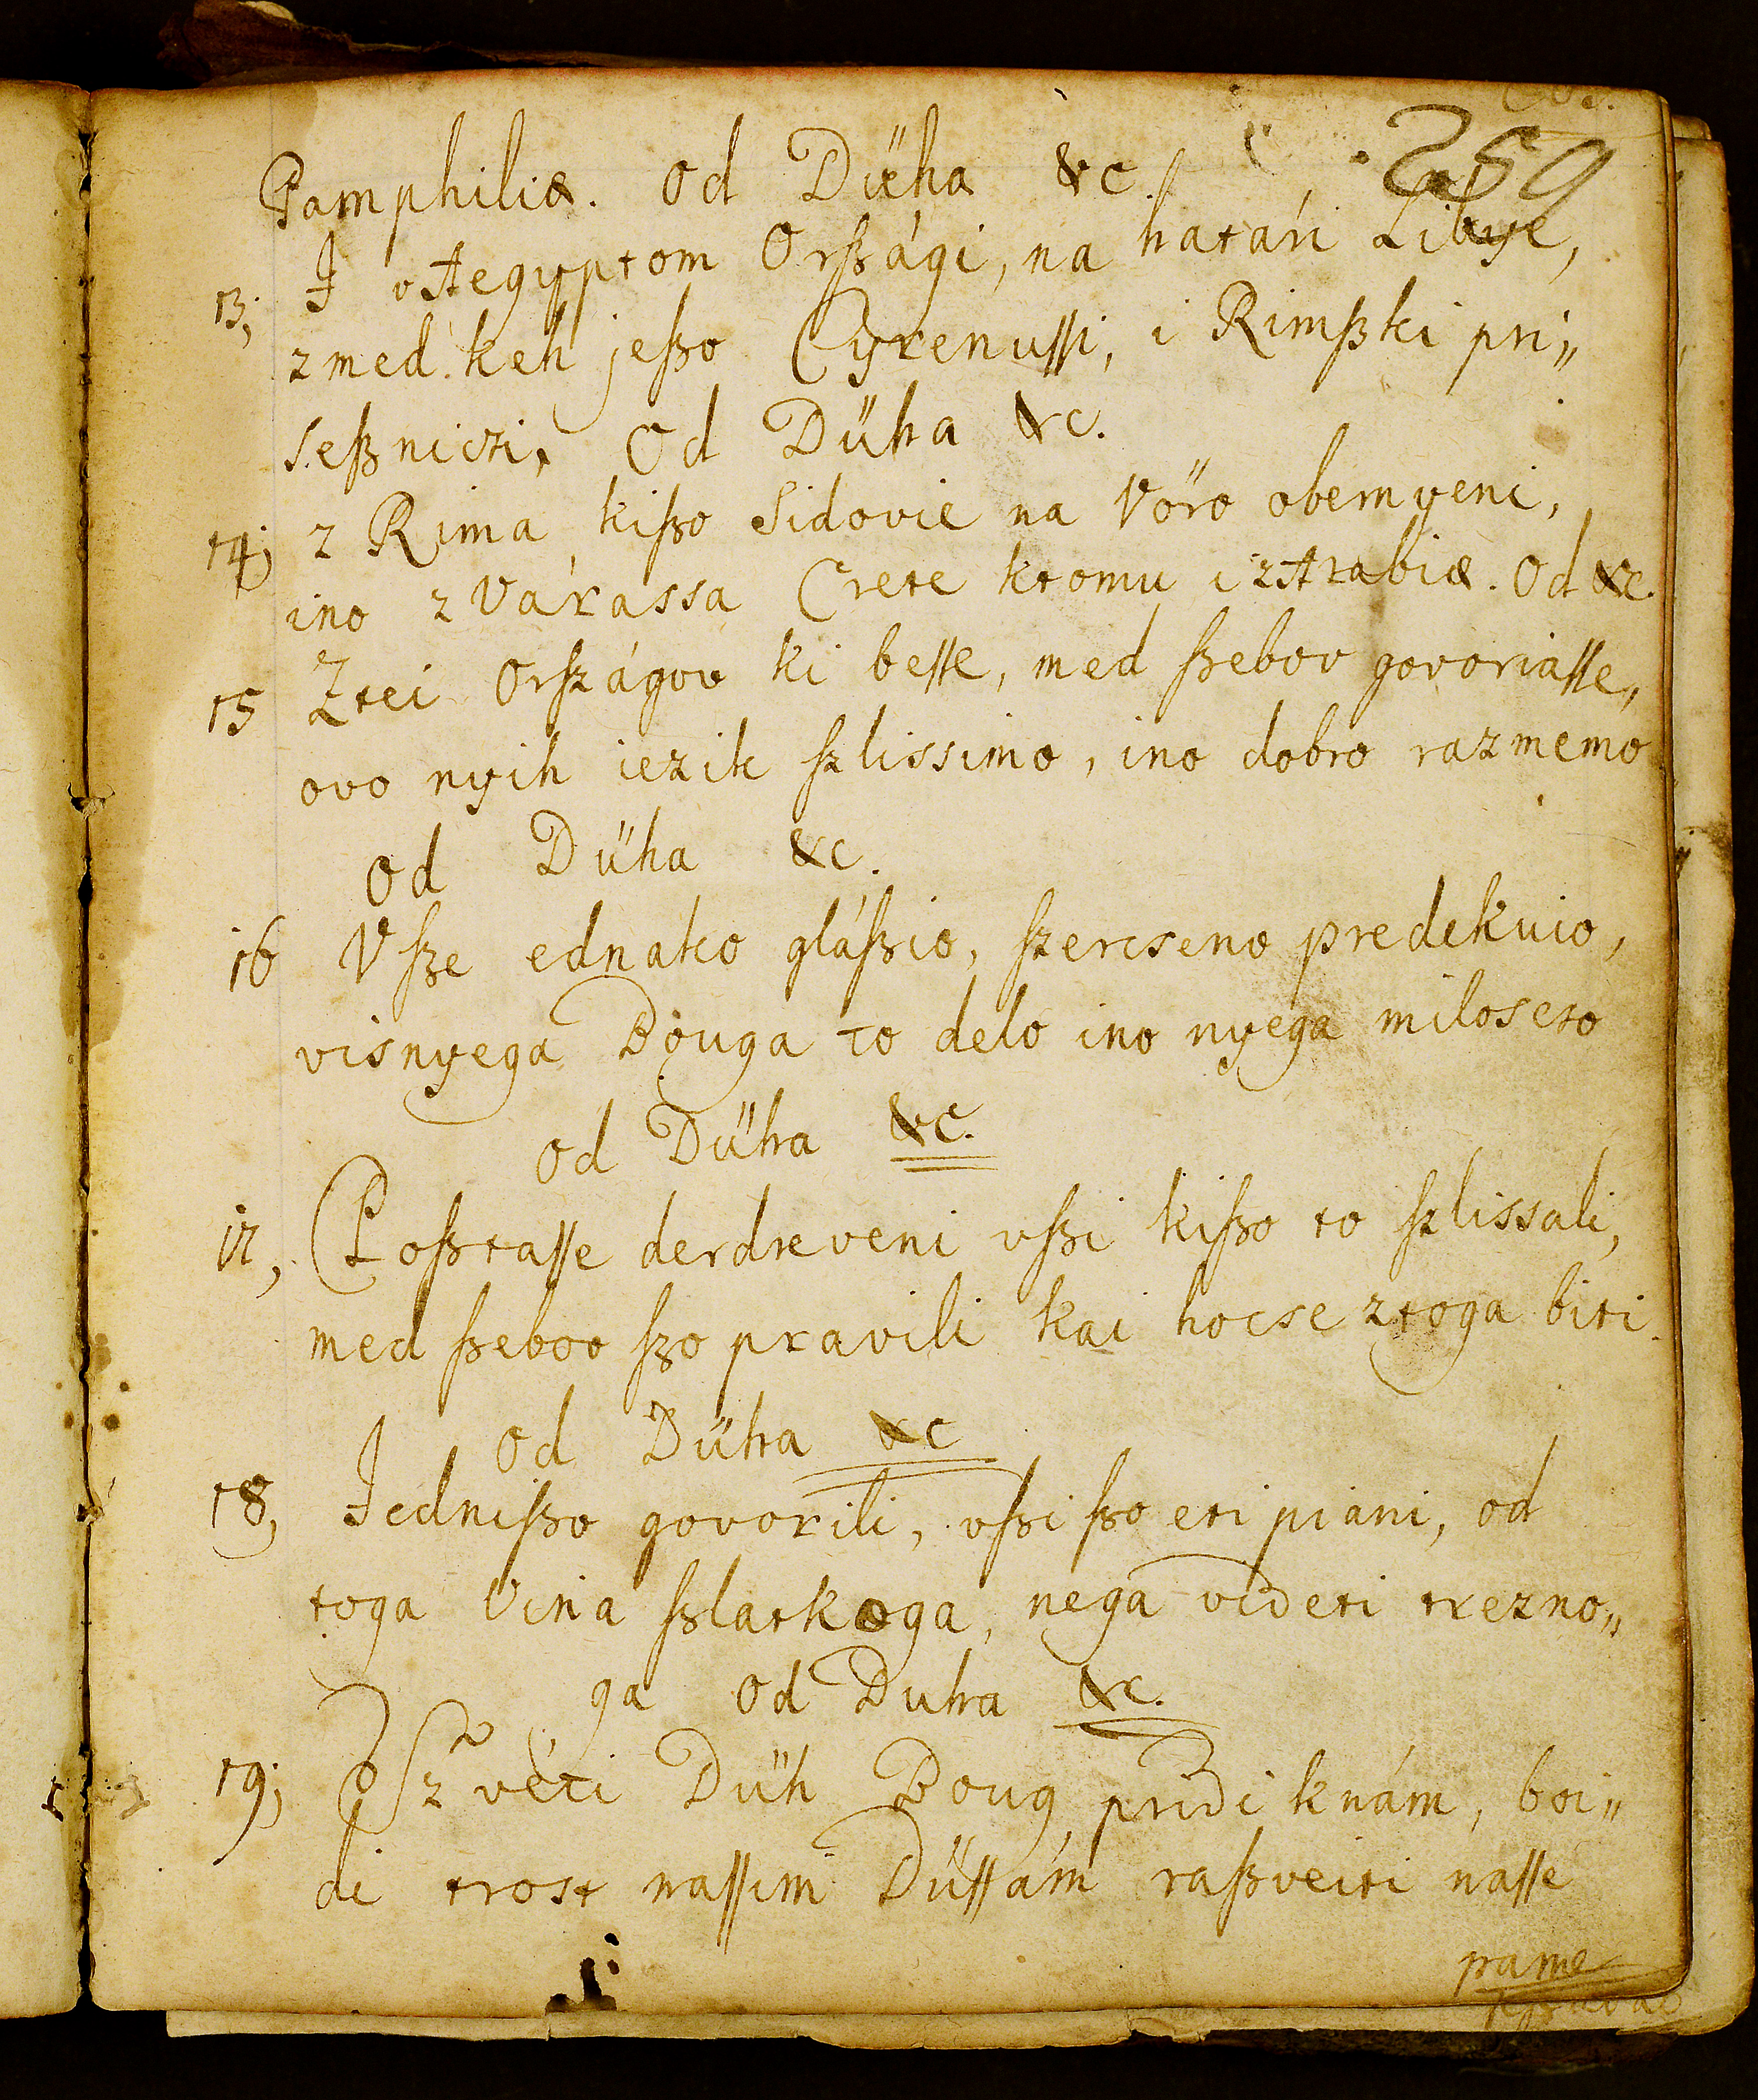 259
Pamphiliæ. Od Düha &c.
13, I v Aegyptom Orßági, na határi Libye,
zmed keh jeßo Cyrenussi, i Rimßki pri„
seßniczi, Od Düha &c.
14; z Rima kißo Sidovie na Vöro obernyeni,
ino z Várassa Crete ktomu i z Arabiæ. Od &c.
15 Ztei Orſzágov ki besse, med ßebov govoriasse,
ovo nyih iezik ſzlissimo, ino dobro razmemo
od Düha &c.
16 Vſze ednako gláßio, ſzercseno predekuio,
visnyega Bouga to delo ino nyega miloscto
od Düha &c.
17, Poßtasse derdreveni vßi kißo to ſzlissali,
med ßebov ßo pravili kai hocse ztoga biti
od Düha &c
18, Jednißo govorili, vßi ßo eti piani, od
toga Vina ßlatkoga, nega videti trezno„
ga Od Duha &c.
19; O Szvéti Düh Boug pridi knám, boi„
di trost nassim Düssám raßveiti nasse
pame